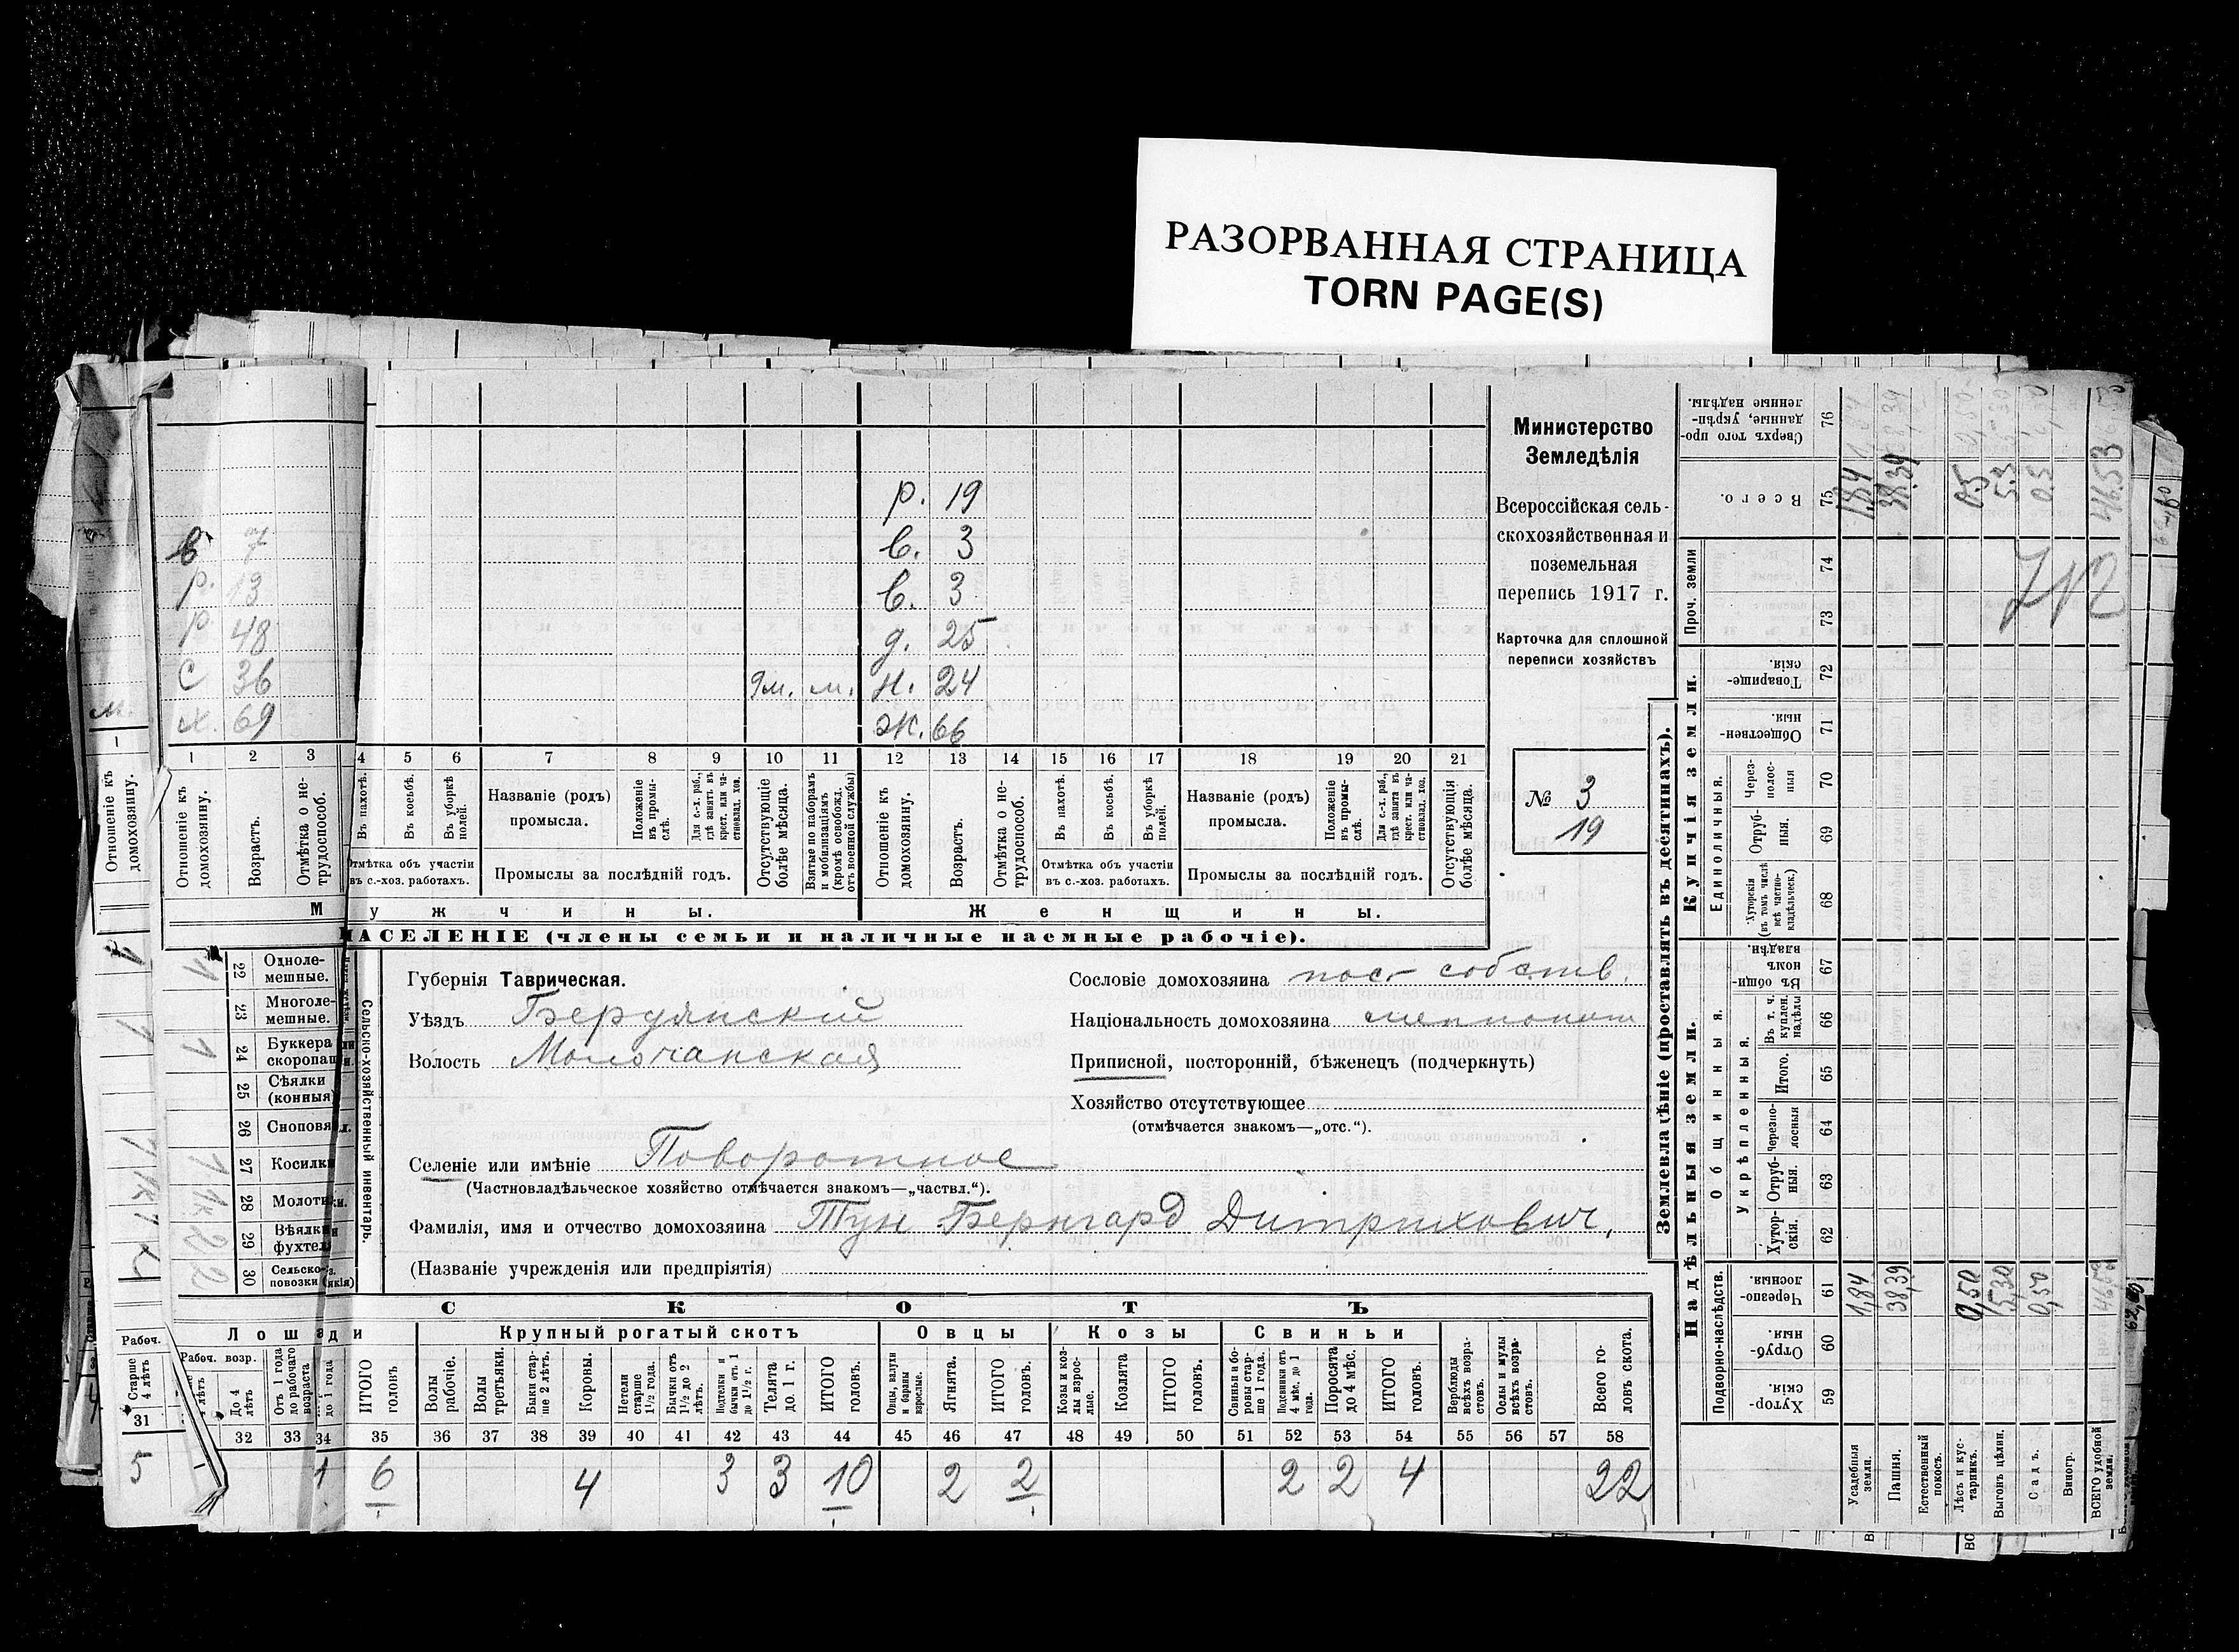 РАЗОРВАННАЯ СТРАНИЦА
TORN PAGE(S)
р. 19
в 7 в. 3
р. 13 в. 3
р 48 д. 25
с 36 9м. м. н. 24
х. 69 Ж. 66
1 2 3 4 5 6 7 8 9 10 11 12 13 14 15 16 17 18 19 20 21
Отношеніе къ домохозяину.
Возрастъ.
Отмѣтка о не-трудоспособ.
Въ пахотѣ.
Въ косьбѣ.
Въ уборкѣ полей.
Названіе (родъ) промысла.
Положеніе въ промы-слѣ.
Для с.-х. раб., гдѣ занятъ въ крест. или ча-стновлад. хоз.
Отсутствующіе болѣе мѣсяца.
Взятые по наборамъ и мобилизаціямъ (кромѣ освобожд. отъ военной службы)
Отношеніе къ домохозяину.
Возрастъ.
Отмѣтка о не-трудоспособ.
Въ пахотѣ.
Въ косьбѣ.
Въ уборкѣ полей.
Названіе (родъ) промысла.
Положеніе въ промы-слѣ.
Для с.-х. раб., гдѣ занята въ крест. или ча-стновлад. хоз.
Отсутствующія болѣе мѣсяца.
Отмѣтка объ участіи въ с.-хоз. работахъ.
Промыслы за послѣдній годъ.
Отмѣтка объ участіи въ с.-хоз. работахъ.
Промыслы за послѣдній годъ.
Мужчины.
Женщины.
НАСЕЛЕНІЕ (члены семьи и наличные наемные рабочіе).
Министерство
Земледѣлія
Всероссійская сель-
скохозяйственная и
поземельная
перепись 1917 г.
Карточка для сплошной
переписи хозяйствъ
№ 3
19
Губернія Таврическая.
Уѣздъ Бердянскій
Волость Молочанская
Сословіе домохозяина пос- собств.
Національность домохозяина меннонит
Приписной, посторонній, бѣженецъ (подчеркнуть)
Хозяйство отсутствующее
(отмѣчается знакомъ—„отс.“).
Селеніе или имѣніе Поворотное
(Частновладѣльческое хозяйство отмѣчается знакомъ—„частвл.“).
Фамилія, имя и отчество домохозяина Тун Бернгард Дитрихович,
(Названіе учрежденія или предпріятія)
Сельско-хозяйственный инвентарь.
22 Одноле-мешные. 1
23 Многоле-мешные.
24 Буккера скоропаш 1
25 Сѣялки (конныя)
26 Сноповя
27 Косилки 1
28 Молоти 1к
29 Вѣялки фухтел 2
30 Сельско- повозки 2
СКОТЪ
Лошади
Крупный рогатый скотъ
Овцы
Козы
Свиньи
Рабоч.
Старше 4 лѣтъ
31
5
Рабоч. возр.
До 4 лѣтъ
Отъ 1 года до рабочаго возраста
до 1 года
ИТОГО головъ
Волы рабочіе.
Волы третьяки.
Быки стар-ше 2 лѣтъ.
Коровы.
Нетели старше 1½ года.
Бычки отъ 1½ до 2 лѣтъ.
Подтелки и бычки отъ 1 до 1½ г.
Телята до 1 г.
ИТОГО головъ.
Овцы, валухи и бараны взрослые.
Ягнята.
ИТОГО головъ.
Козы и коз-лы взрос-лые.
Козлята
ИТОГО головъ.
Свиньи и бо-ровы стар-ше 1 года.
Подсвинки отъ 4 мѣс. до 1 года.
Поросята до 4 мѣс.
ИТОГО головъ.
Верблюды всѣхъ возра-стовъ.
Ослы и мулы всѣхъ возра-стовъ.
Всего го-ловъ скота.
32 33 34 35 36 37 38 39 40 41 42 43 44 45 46 47 48 49 50 51 52 53 54 55 56 57 58
1 6 4 3 3 10 2 2 2 2 4 22
Землевладѣніе (проставлять въ десятинахъ).
Надѣльныя земли.
Купчія земли.
Подворно-наслѣдств.
Общинныя.
Укрѣпленныя.
Единоличныя.
Проч. земли
59 Хутор-скія
60 Отруб-ныя.
61 Черезпо-лосныя.
62 Хутор-скія.
63 Отруб-ныя.
64 Черезпо-лосныя
65 Итого.
66 Въ т. ч. куплен. надѣлы
67 Въ общин-номъ владѣн.
68 Хуторскія (въ томъ числѣ всѣ частно-владѣльческ.)
69 Отруб-ныя.
70 Через-полос-ныя
71 Обществен-ныя.
72 Товарище-скія.
73
74
75 Всего.
76 Сверхъ того про-данные, укрѣп-ленные надѣлы.
Усадебныя земли. 1,84 1,84
Пашня. 38,39 38,39
Естественный покосъ.
Лѣсъ и кус-тарникъ. 0,50 0,5
Выгонъ цѣлин. 5,30 5,3
Садъ. 0,50 0,5
Виногр.
ВСЕГО удобной земли. 46,53 46,53